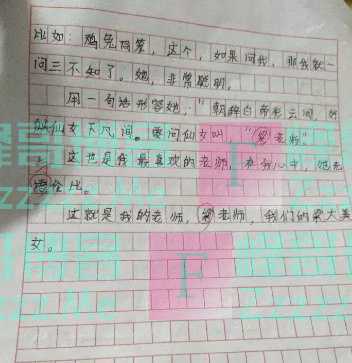 比如:鸡兔同笼,这个,如果问我,那我就一
问三不知了。她,非常聪明,
用一句话形容她:"朝辞白帝彩云间,好
似仙女下凡间。要问仙女叫"梁老师"
这也是我最喜欢的老师,在我心中,她无
与伦比。
这就是我的老师,梁老师,我们的梁大美
女。
F
F